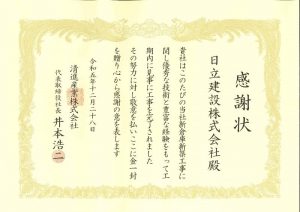 感謝状
日立建設株式会社殿
貴社はこのたびの当社新倉庫新築工事に
関し優秀な技術と豊富な経験をもって工
期内に見事に工事を完了されました
その努力に対し敬意を払いここに金一封
を贈り心から感謝の意を表します
令和五年十二月二十八日
清進産業株式会社
代表取締役社長 井本浩二